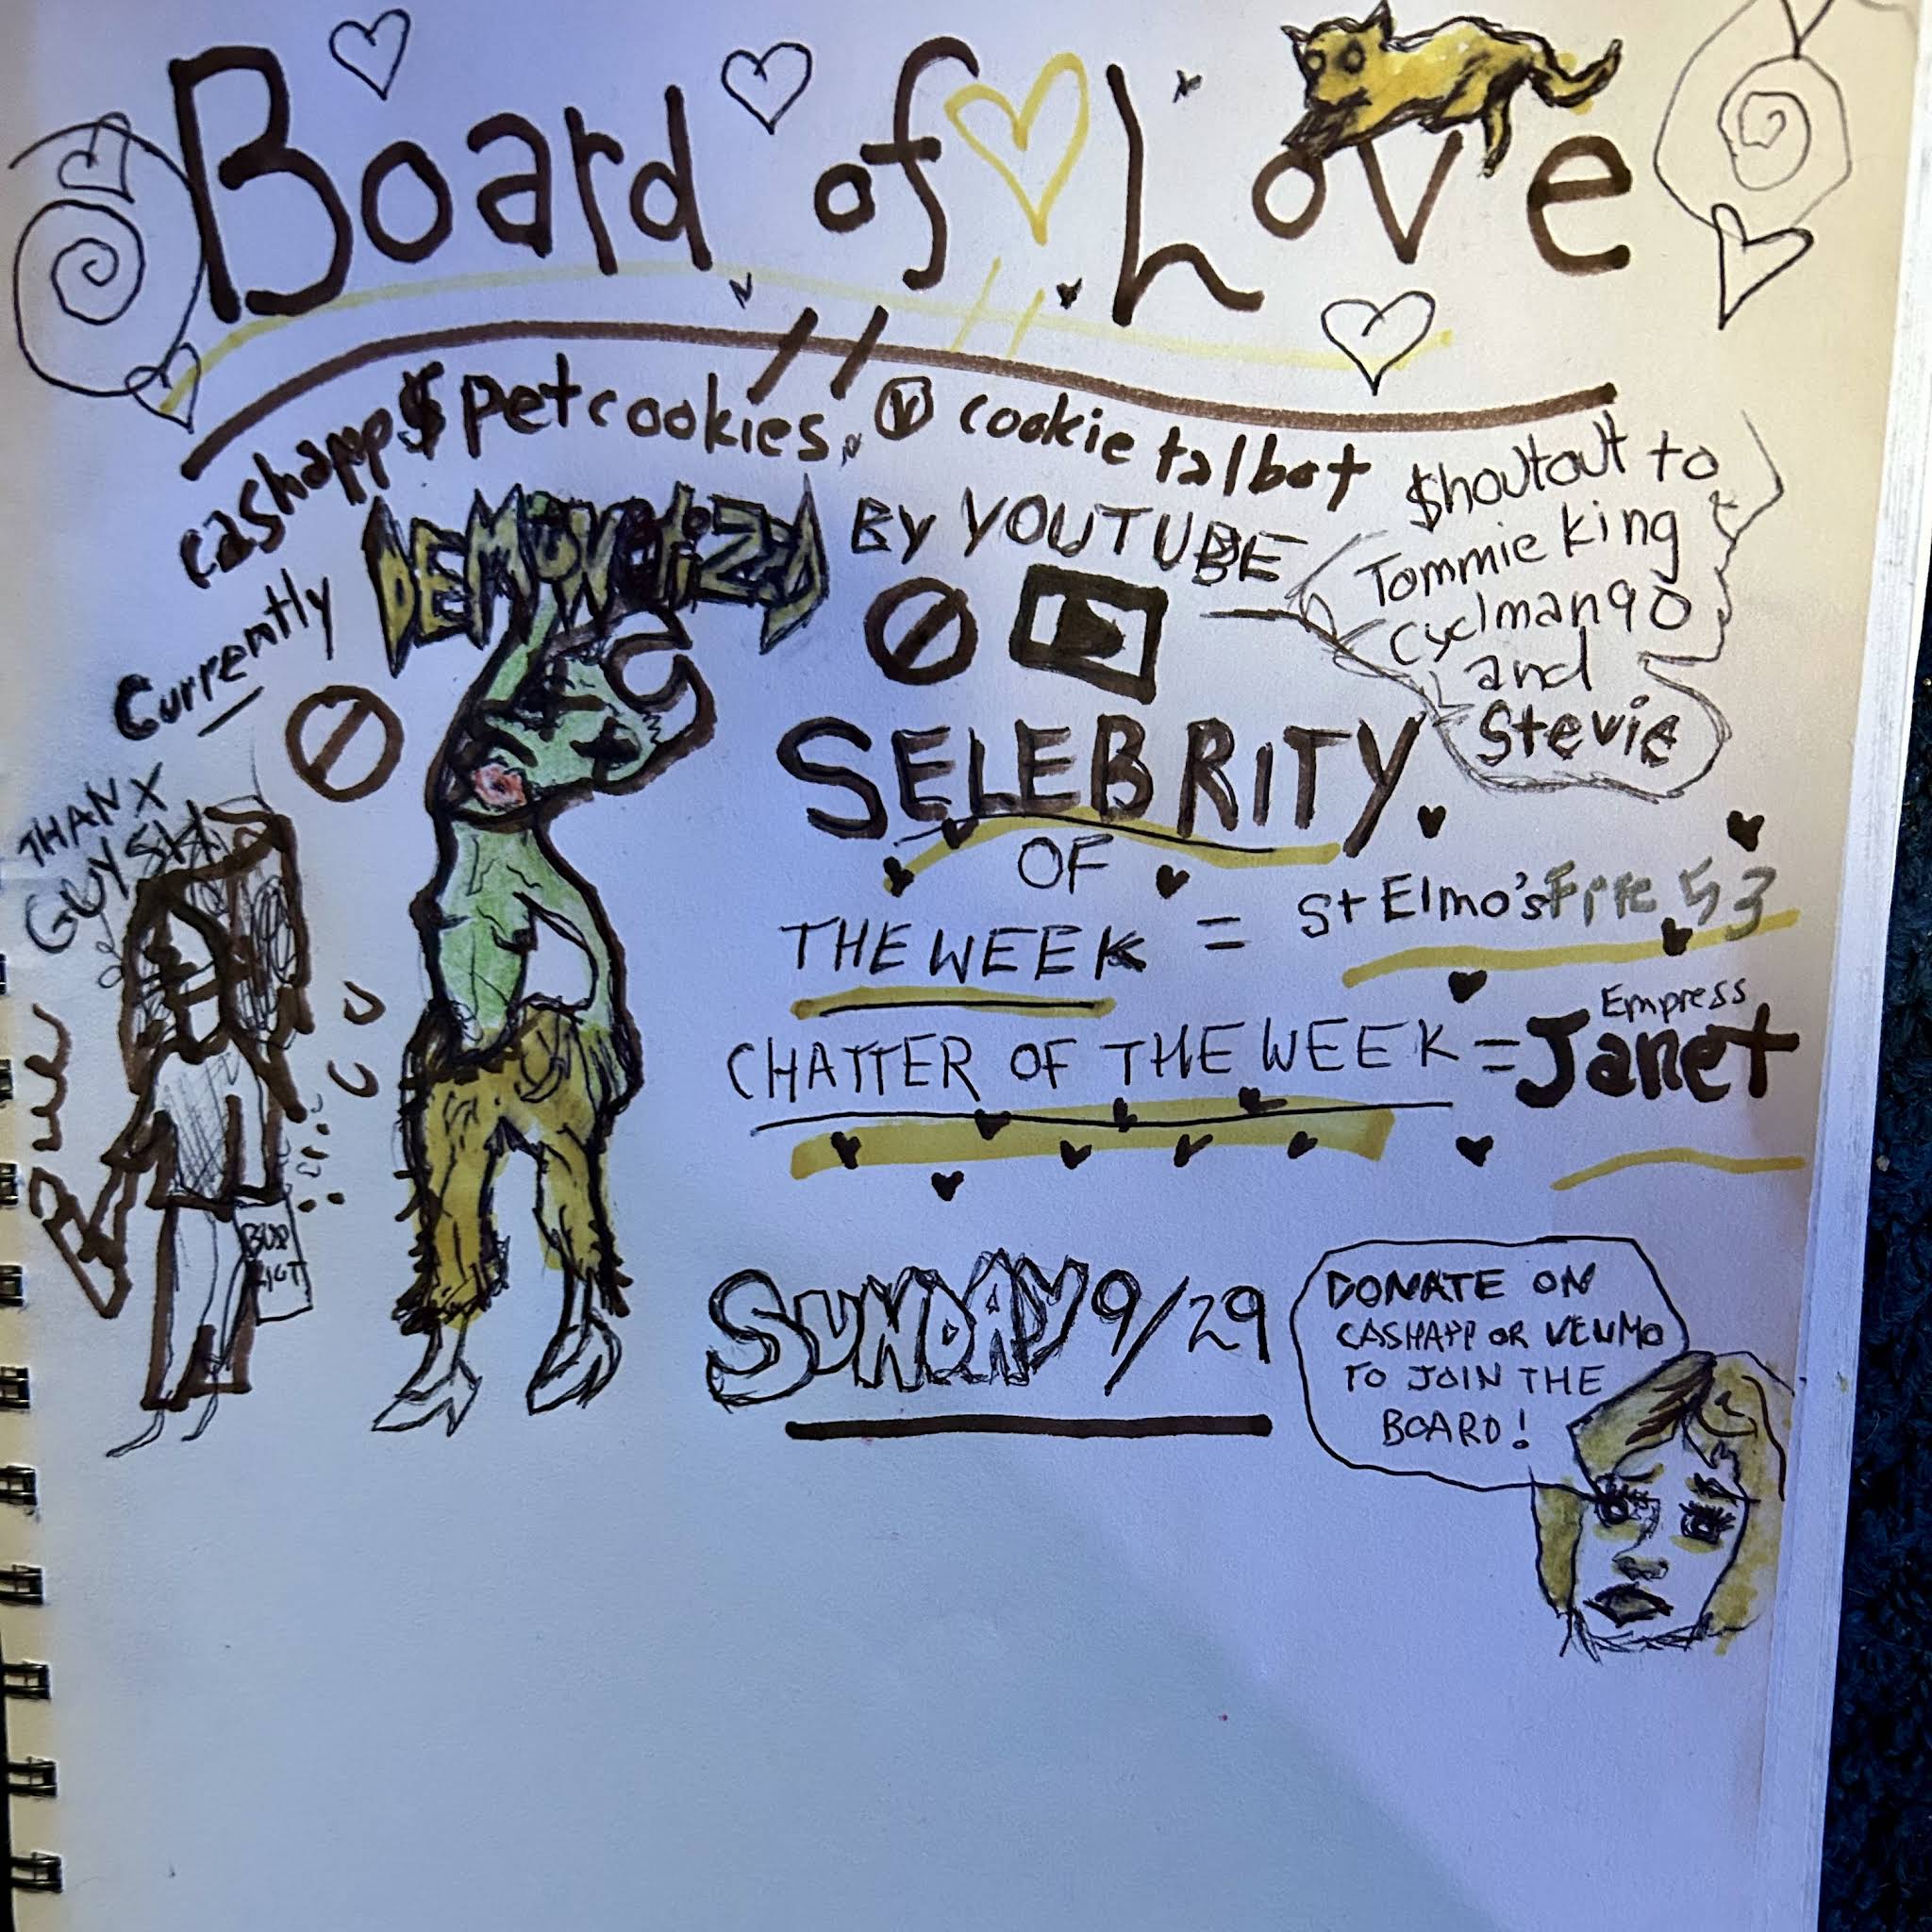 Board of Love
cashapp $petcookies. V cookie talbot
Currently DEMONetiZED By YOUTUBE
$houtout to
Tommie King
Cyclman90
and
Stevie
THANX
GUYS
SELEBRITY
OF
THE WEEK = St Elmo's Fire 53
CHATTER OF THE WEEK = Empress Janet
SUNDAY 9/29
DONATE ON
CASHAPP OR VENMO
TO JOIN THE
BOARD!